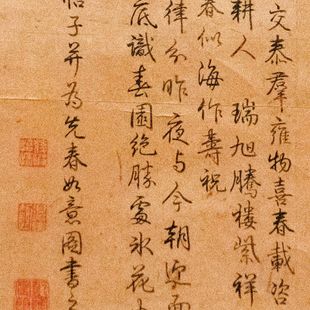 交泰羣雍物喜春載咨
耕人 瑞旭騰樓紫祥
春似海作壽祝
律分昨夜与今朝迎面
底識春園絶勝處氷花
帖子并為先春如意圖書